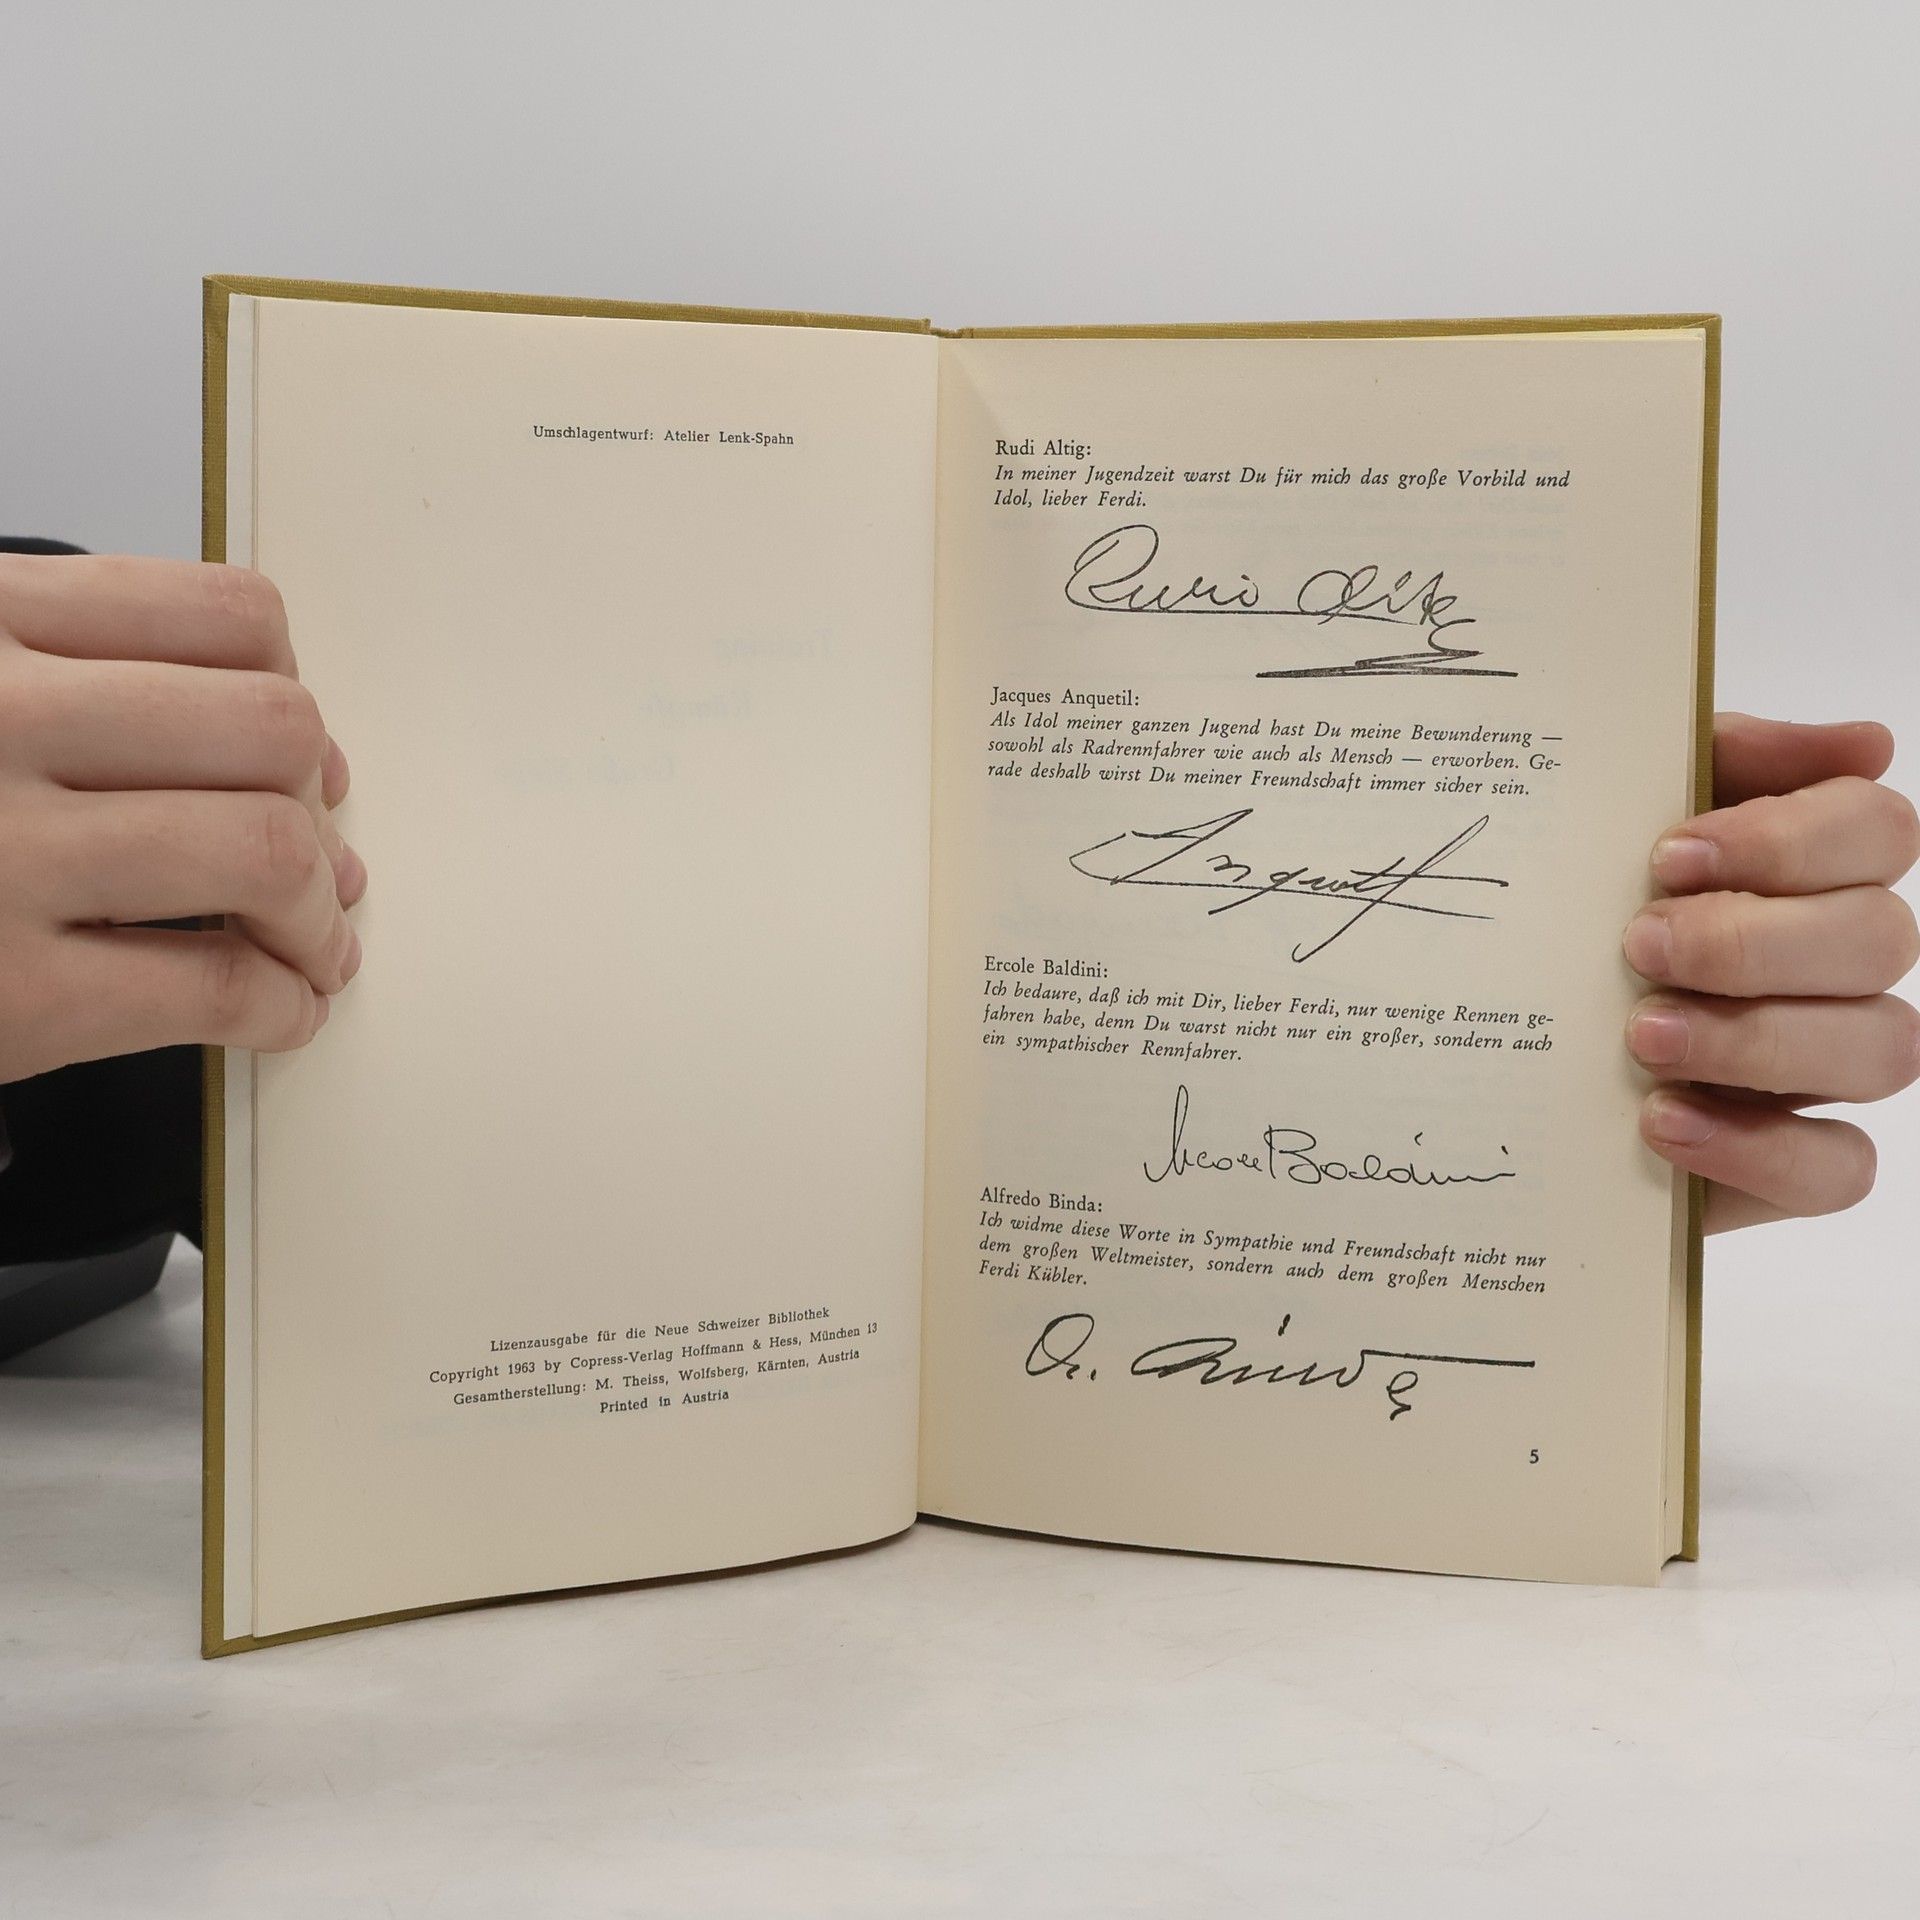 Umschlagentwurf: Atelier Lenk-Spahn
Lizenzausgabe für die Neue Schweizer Bibliothek
Copyright 1963 by Copress-Verlag Hoffmann & Hess, München 13
Gesamtherstellung: M. Theiss, Wolfsberg, Kärnten, Austria
Printed in Austria
Rudi Altig:
In meiner Jugendzeit warst Du für mich das große Vorbild und
Idol, lieber Ferdi.
Rudi Altig
Jacques Anquetil:
Als Idol meiner ganzen Jugend hast Du meine Bewunderung —
sowohl als Radrennfahrer wie auch als Mensch — erworben. Ge-
rade deshalb wirst Du meiner Freundschaft immer sicher sein.
Anquetil
Ercole Baldini:
Ich bedaure, daß ich mit Dir, lieber Ferdi, nur wenige Rennen ge-
fahren habe, denn Du warst nicht nur ein großer, sondern auch
ein sympathischer Rennfahrer.
Ercole Baldini
Alfredo Binda:
Ich widme diese Worte in Sympathie und Freundschaft nicht nur
dem großen Weltmeister, sondern auch dem großen Menschen
Ferdi Kübler.
A. Binda
5